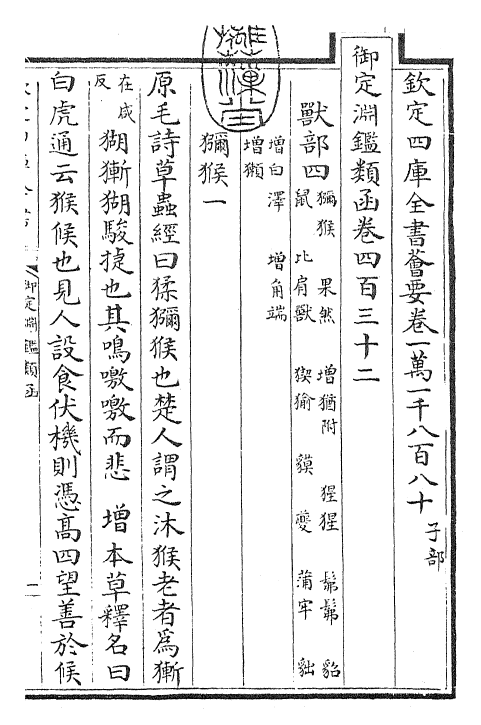 欽定四庫全書薈要卷一萬一千八百八十 子部
御定淵鑑類函卷四百三十二
獸部四 獼猴 果然 增猶附 猩猩 鬅鬅 貂
鼠 比肩獸 猰㺄 貘 䝟 蒲牢 貀
增白澤 增角端
增獺
獼猴一
原毛詩草蟲經曰猱獼猴也楚人謂之沐猴老者爲獑
在咸反
猢獑猢駿捷也其鳴噭噭而悲 增本草釋名曰
白虎通云猴候也見人設食伏機則憑高四望善於候
御定淵鑑類函
一